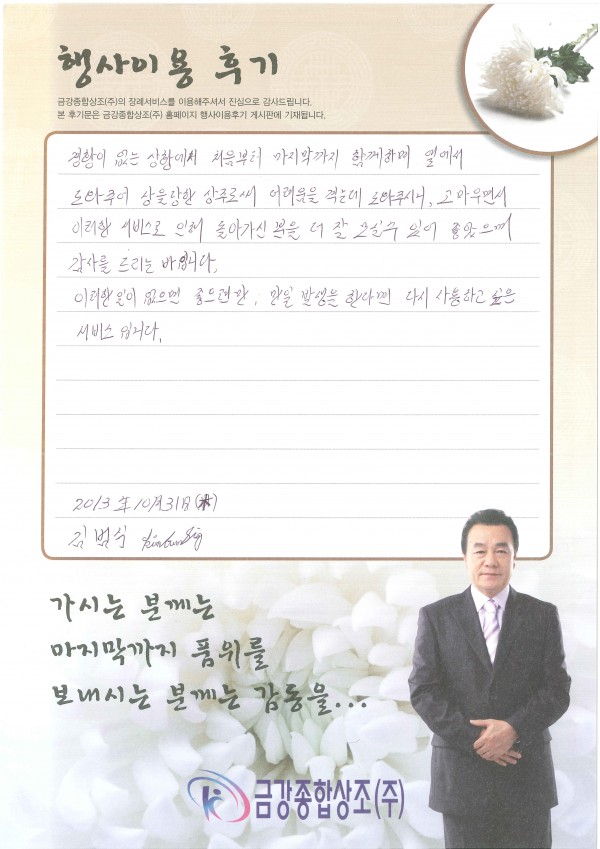 행사이용 후기
금강종합상조(주)의 장례서비스를 이용해주셔서 진심으로 감사드립니다.
본 후기문은 금강종합상조(주) 홈페이지 행사이용후기 게시판에 기재됩니다.
경황이 없는 상황에서 처음부터 마지막까지 함께하며 옆에서
도와주어 상을당한 상주로써 어려움을 격는데 도와주시니, 고마우면서
이러한 서비스로 인해 돌아가신 분을 더 잘 모실수 있어 좋았으며
감사를 드리는 바입니다.
이러한일이 없으면 좋으련만, 만일 발생을 한다면 다시 사용하고 싶은
서비스 입니다.
2013年 10月31日(木)
김범식
가시는 분께는
마지막까지 품위를
보내시는 분께는 감동을...
금강종합상조(주)